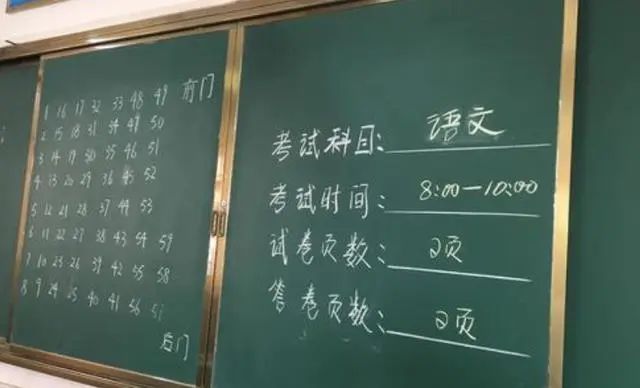 1 16 17 32 33 48 49 前门
2 15 18 31 34 47 50
3 14 19 30 35 46 51
4 13 20 29 36 45 52
5 12 21 28 37 44 53
6 11 22 27 38 43 54 59
7 10 23 26 39 42 55 58
8 9 24 25 40 41 56 57
后门
考试科目: 语文
考试时间: 8:00-10:00
试卷页数: 2页
答卷页数: 2页